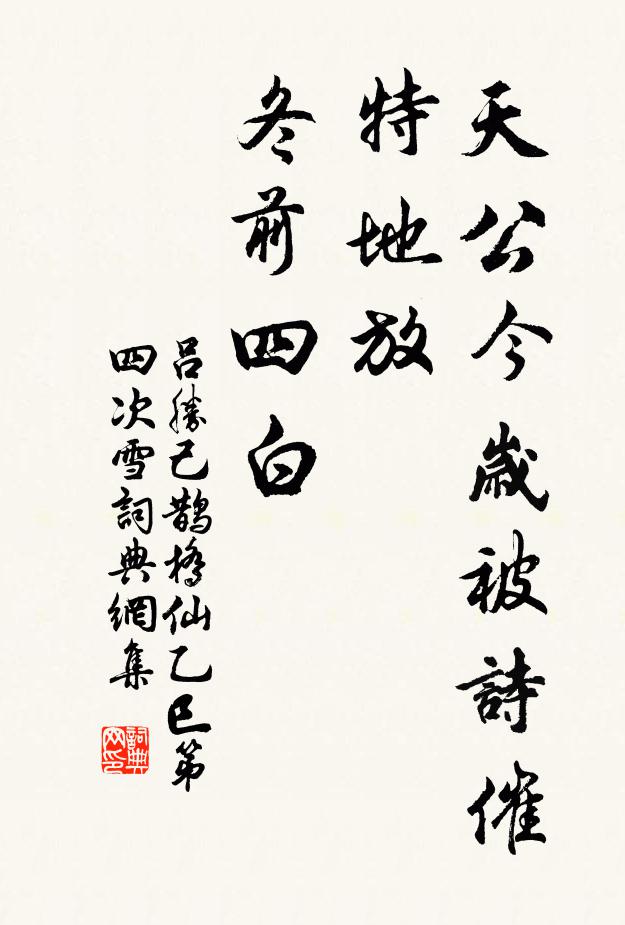 天公今歲被詩催
特地放
冬前四白
呂勝己鵲橋仙乙巳第
四次雪詞典網集
詞典
网印